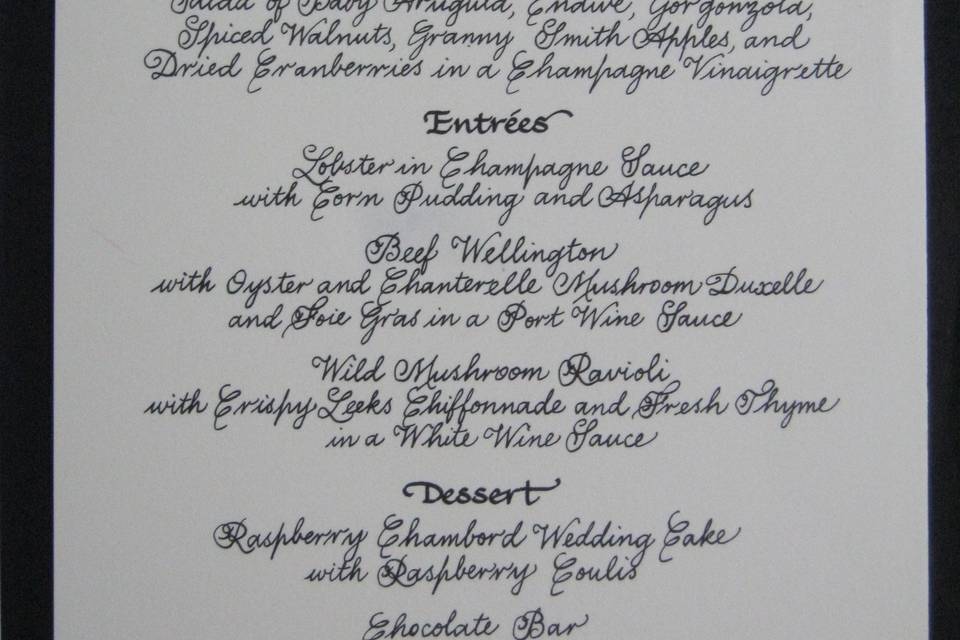 Salad of Baby Arugula, Endive, Gorgonzola,
Spiced Walnuts, Granny Smith Apples, and
Dried Cranberries in a Champagne Vinaigrette
Entrées
Lobster in Champagne Sauce
with Corn Pudding and Asparagus
Beef Wellington
with Oyster and Chanterelle Mushroom Duxelle
and Foie Gras in a Port Wine Sauce
Wild Mushroom Ravioli
with Crispy Leeks Chiffonnade and Fresh Thyme
in a White Wine Sauce
Dessert
Raspberry Chambord Wedding Cake
with Raspberry Coulis
Chocolate Bar